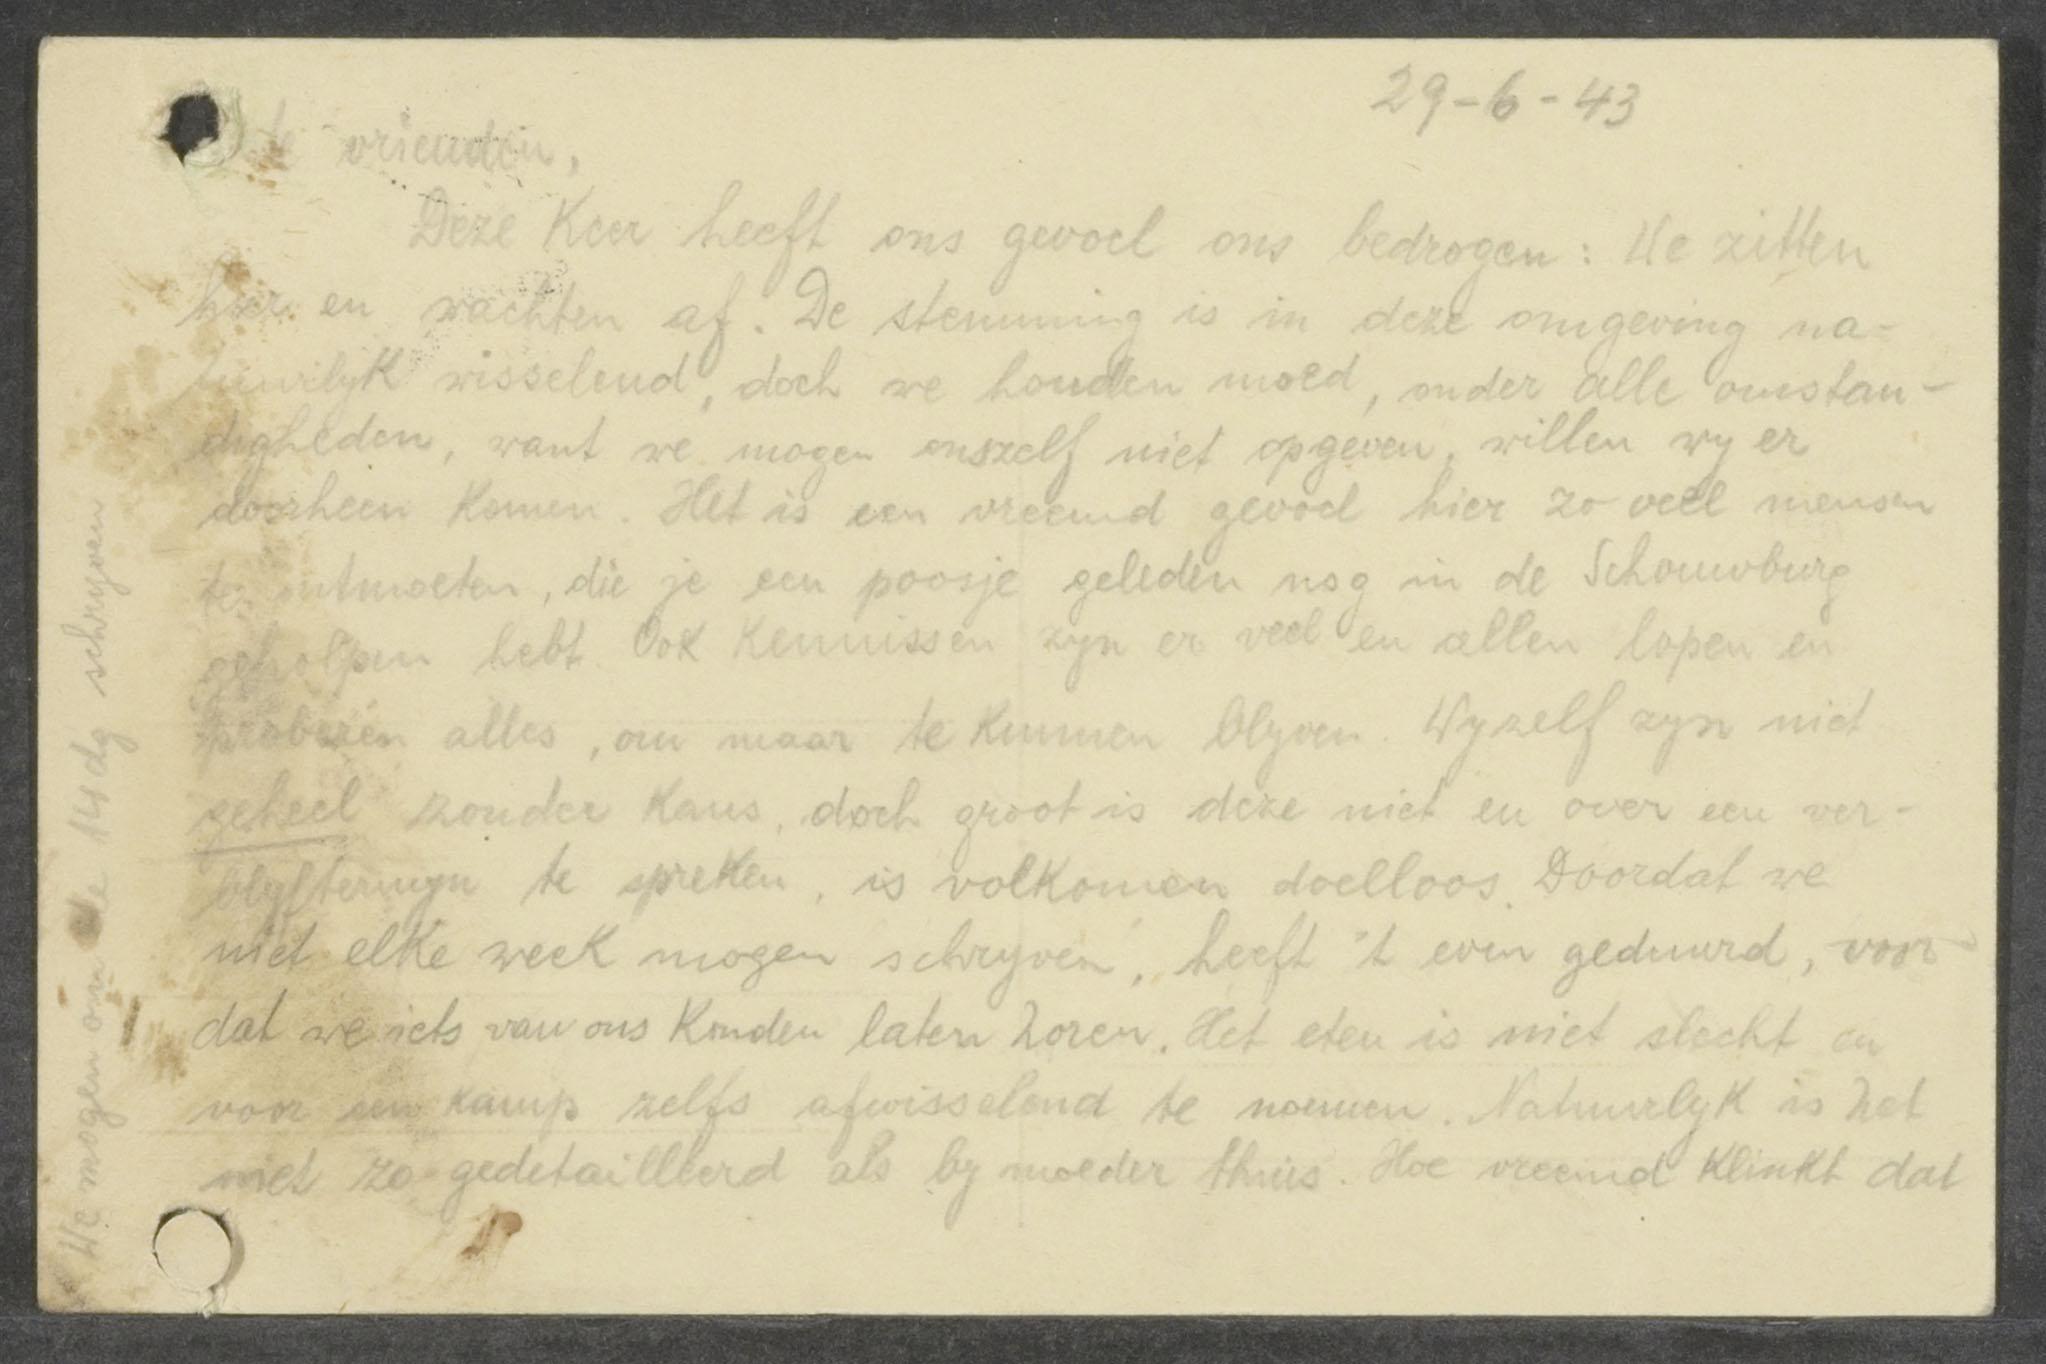 29-6-43
vrienden,
Deze Keer heeft ons gevoel ons bedrogen: We zitten
hier en wachten af. De stemming is in deze omgeving na-
tuurlyk wisselend, doch we houden moed, onder alle omstan-
digheden, want we mogen onszelf niet opgeven, willen wy er
doorheen komen. Het is een vreemd gevoel hier zo veel mensen
te ontmoeten, die je een poosje geleden nog in de Schouwburg
geholpen hebt. Ook Kennissen zyn er veel en allen lopen en
proberen alles, om maar te kunnen blyven. Wyzelf zyn niet
geheel zonder Kans, doch groot is deze niet en over een ver-
blyftermyn te spreken, is volkomen doelloos. Doordat we
niet elke week mogen schryven, heeft 't even geduurd, voor-
dat we iets van ons Konden laten horen. Het eten is niet slecht en
voor een kamp zelfs afwisselend te noemen. Natuurlyk is het
niet zo gedetailleerd als by moeder thuis. Hoe vreemd klinkt dat
We mogen om de 14 dg schryven